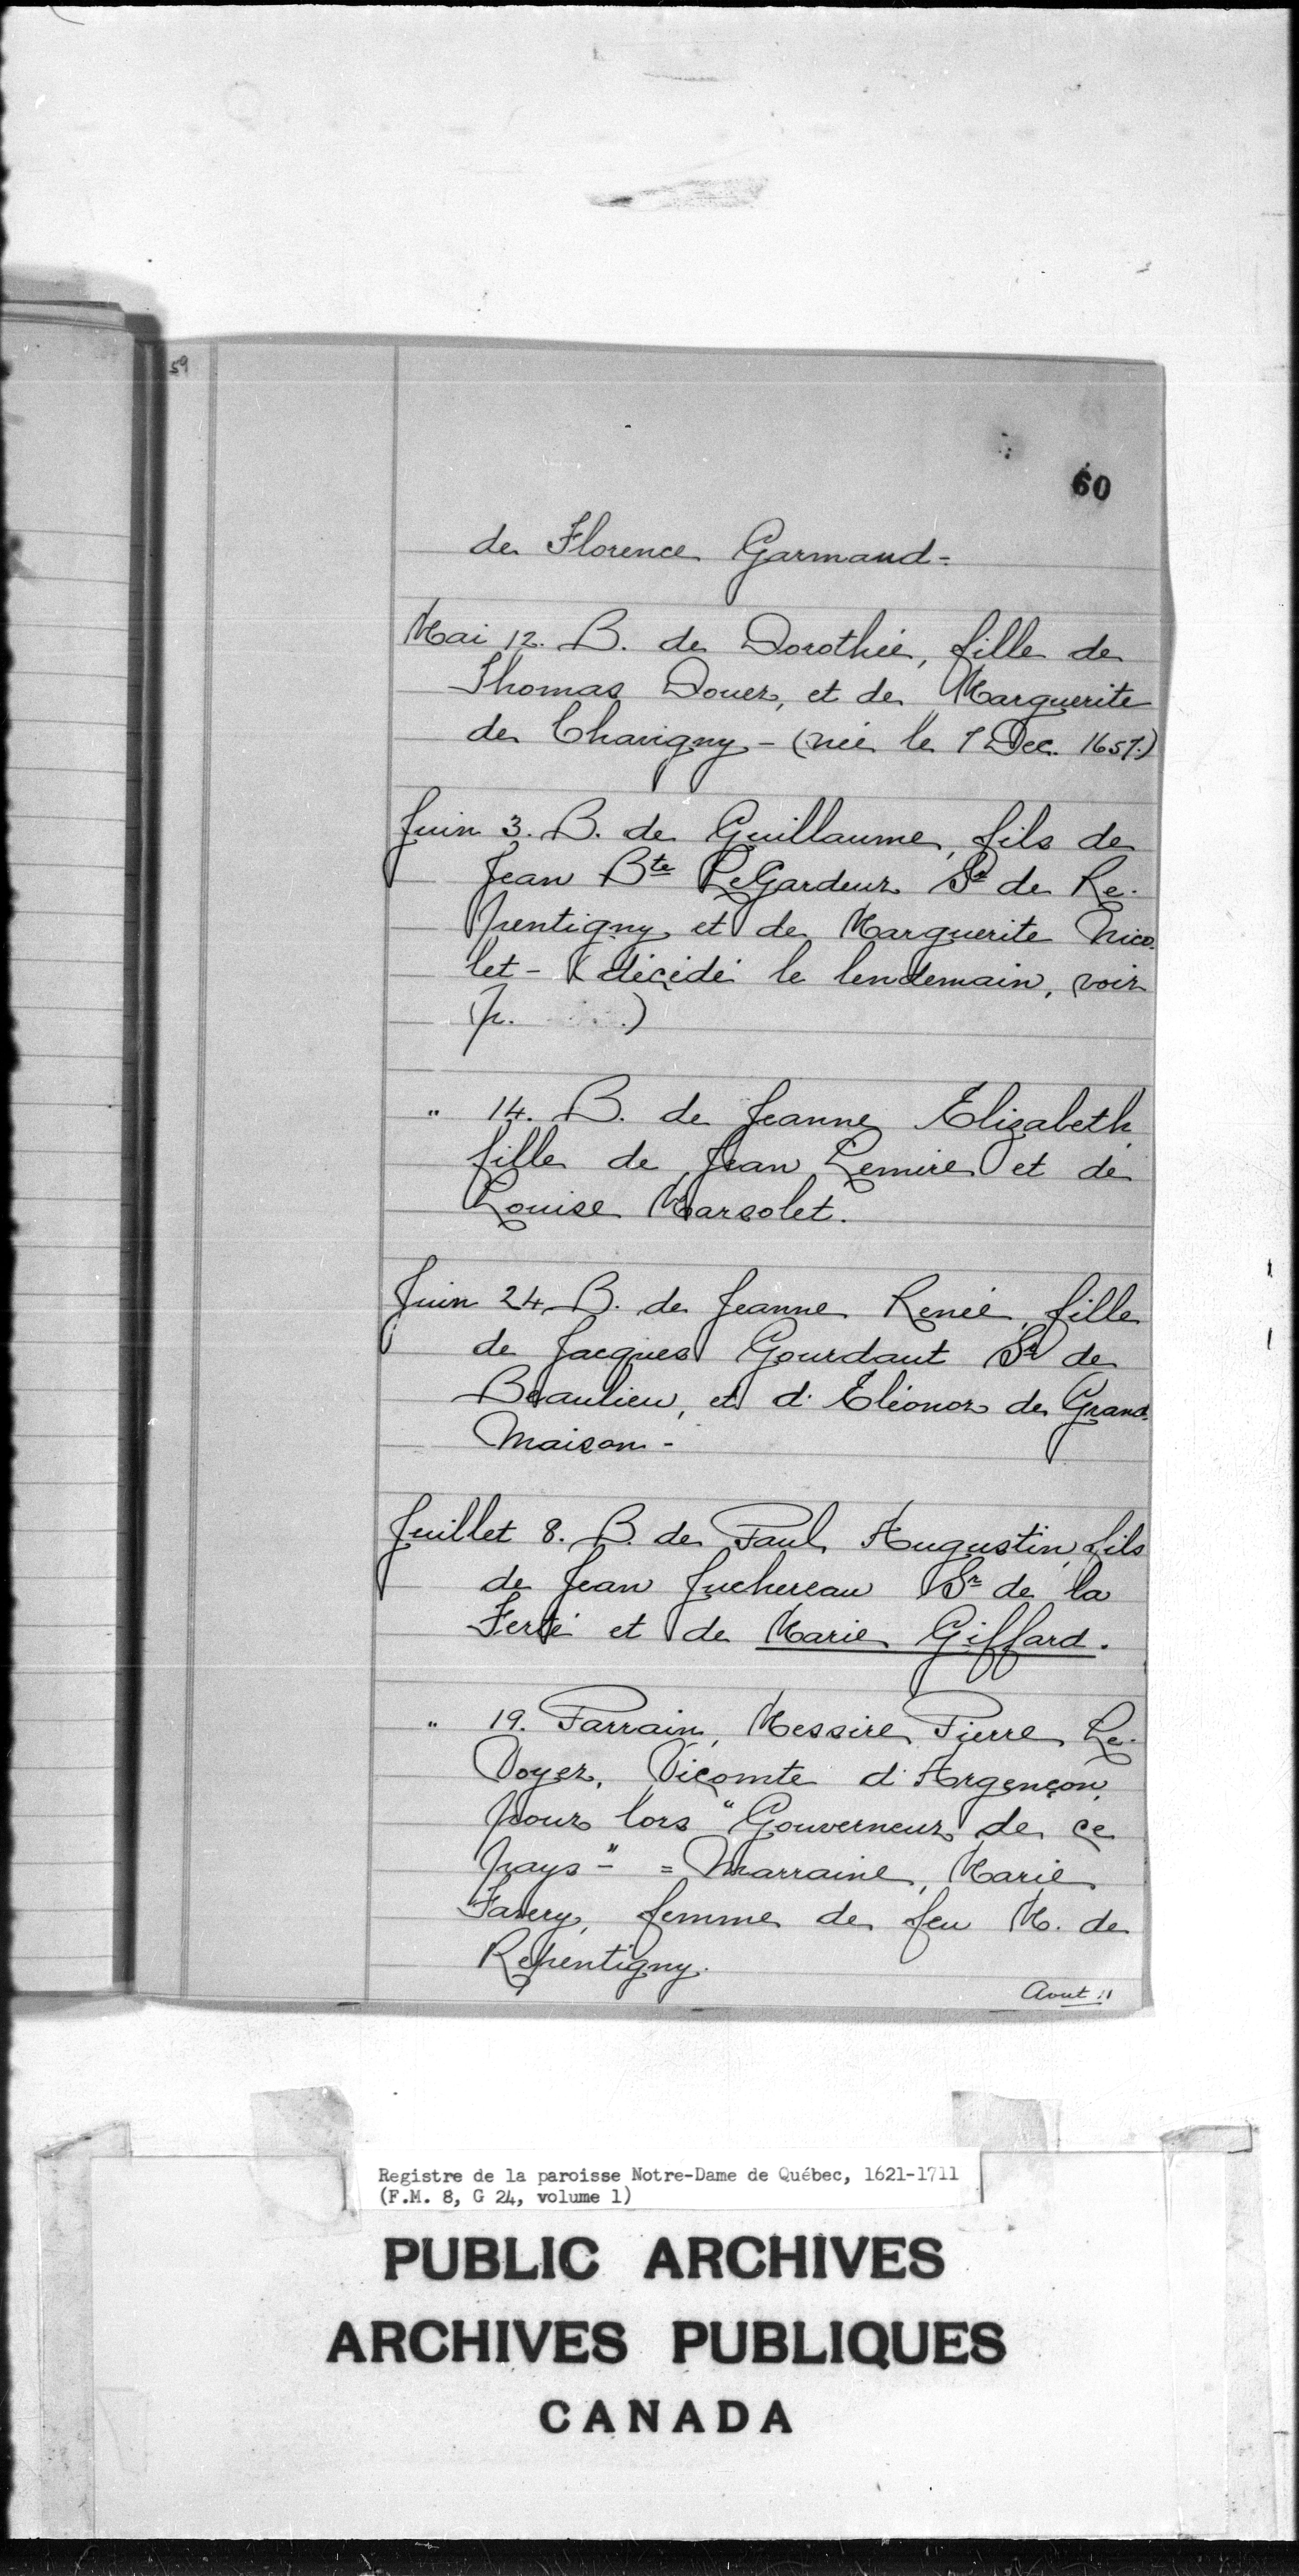 59
60
de Florence Garmand =
Mai 12. B. de Dorothée, fille de
Thomas Douer, et de Marguerite
de Chavigny - (née le 7 Dec. 1657.)
Juin 3. B. de Guillaume, fils de
Jean Bte LeGardeur Sr de Re-
pentigny et de Marguerite Nico-
let - (décédé le lendemain, voir
p. )
" 14. B. de Jeanne Elizabeth,
fille de Jean Lemire et de
Louise Marsolet.
Juin 24. B. de Jeanne Renée, fille
de Jacques Gourdaut Sr de
Beaulieu, et d'Eléonor de Grand-
Maison -
Juillet 8. B. de Paul Augustin, fils
de Jean Juchereau Sr de la
Ferté et de Marie Giffard.
" 19. Parrain, Messire Pierre Le-
Voyer, Vicomte d'Argençon,
pour lors "Gouverneur de ce
pays" - = Marraine, Marie
Favery, femme de feu M. de
Repentigny.
Aout 11
Registre de la paroisse Notre-Dame de Québec, 1621-1711
(F.M. 8, G 24, volume 1)
PUBLIC ARCHIVES
ARCHIVES PUBLIQUES
CANADA